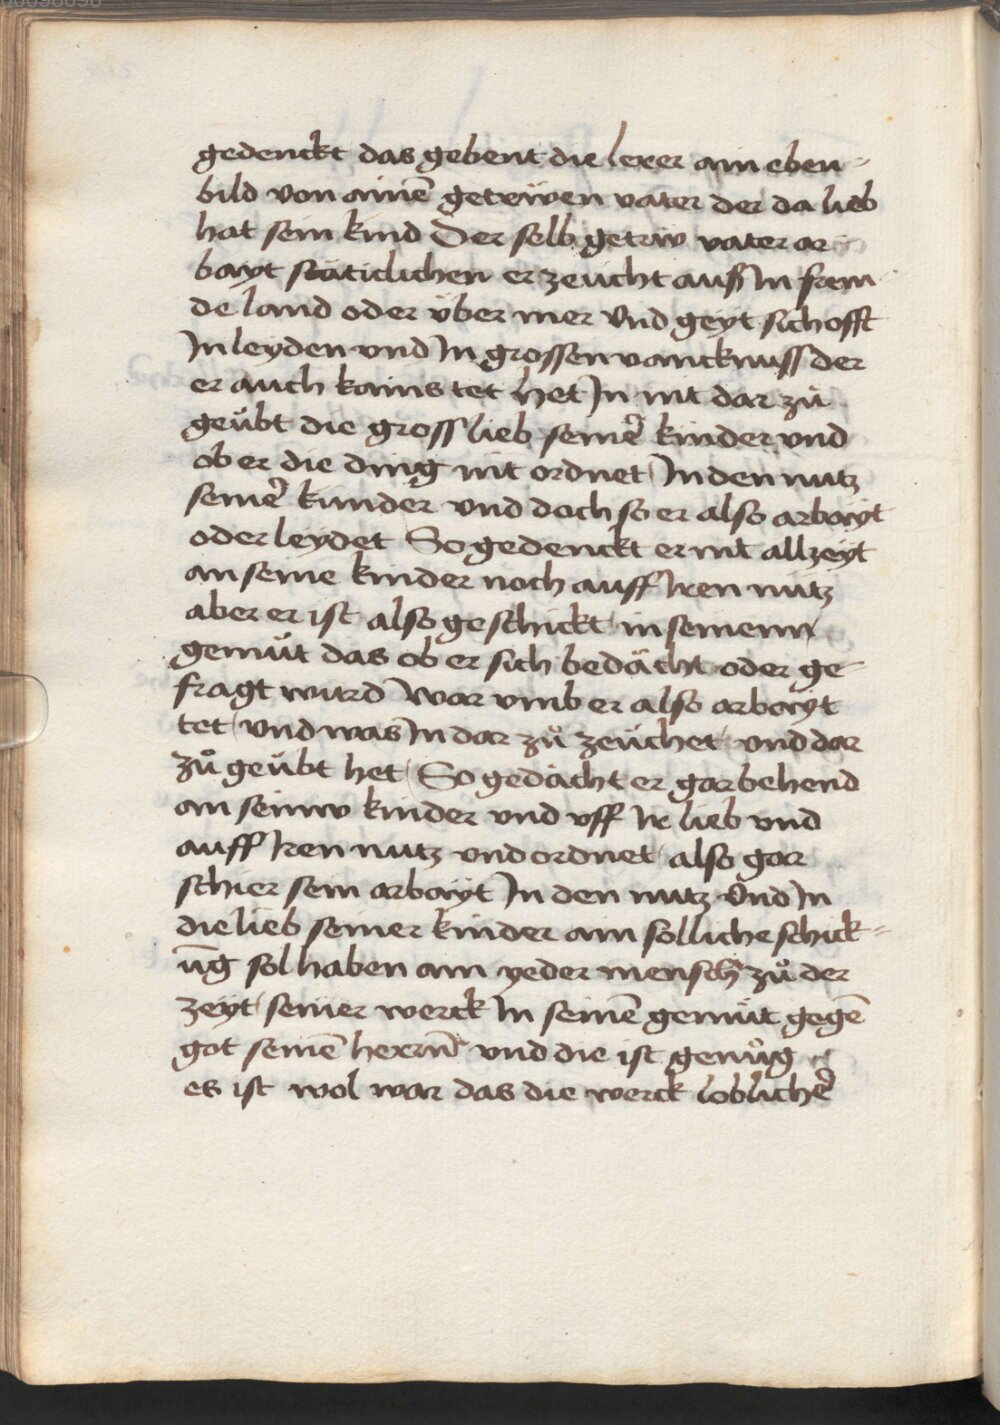 gedenckt das gebent die lerer ain eben⸗
bild von ainē getrüwen vater der da lieb
hat sein kind Der selb getriw vater ar
bayt stäticlichen er zeücht auß In frem
de land oder über mer Vnd geyt sich offt
In leyden vnd In grossen vancknuss der
er auch kains tet het In nit dar zü
geübt die gross lieb seiner̄ kinder vnd
ob er die ding nit ordnet In den nutz
seiner̄ kinder vnd doch so er also arbayt
oder leydet So gedenckt er nit allzeyt
an seine kinder noch auff Iren nutz
aber er ist also geschickt in seinem
gemüt das ob er sich bedächt oder ge⸗
fragt wurd war vmb er also arbayt
tet vnd was In dar zů zeüchet vnd dar
zů geübt het So gedächt er gar behend
an seinw kinder vnd vff Ir lieb vnd
auff Iren nutz vnd ordnet also gar
schier sein arbayt In den nutz Vnd In
die lieb seiner kinder ain solliche schick⸗
ūg sol haben ain yeder mensch zů der
zeyt seiner werck In seinē gemüt gegē
got seinē herrn̄ vnd die ist genůg
es ist wol war das die werck loblicher̄